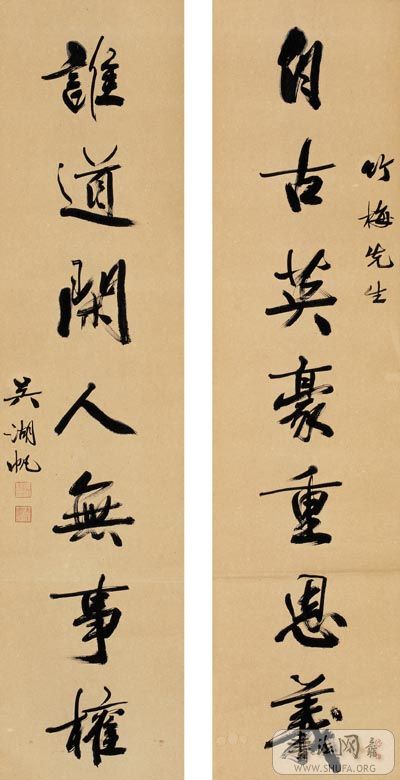 竹梅先生
自古英豪重恩義
誰道閑人無事權
吳湖帆
書法网
WWW.SHUFA.ORG